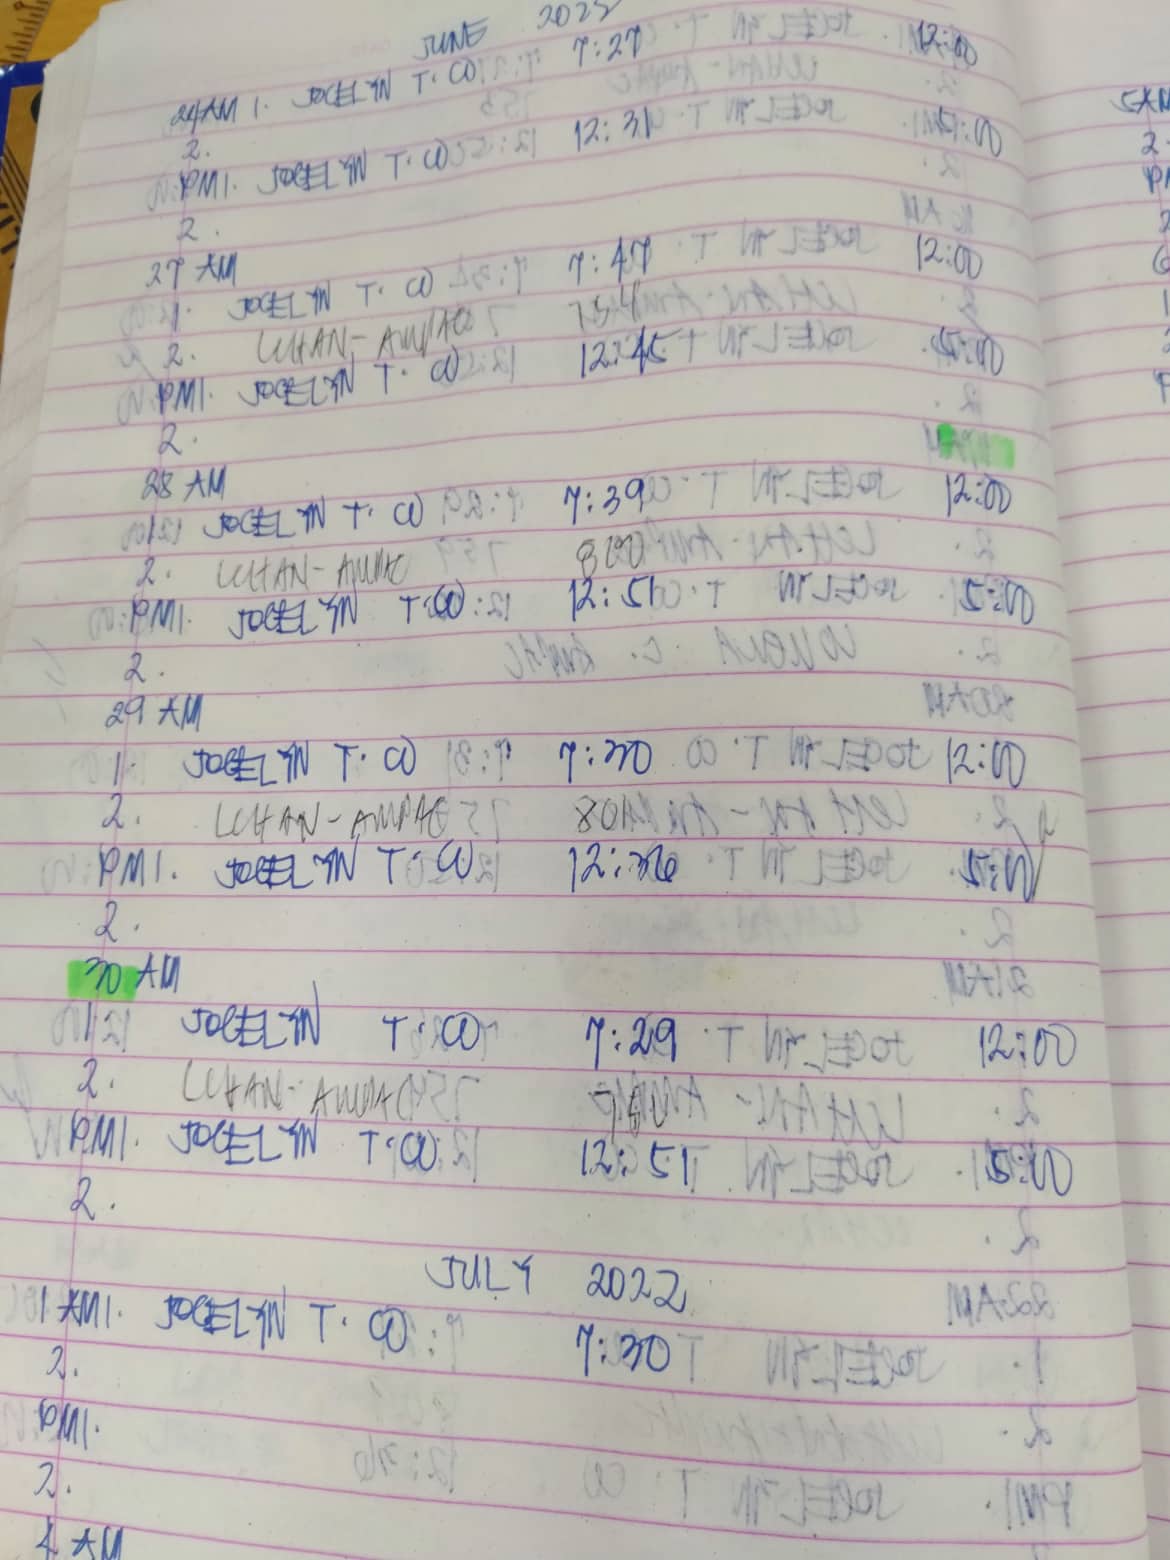 JUNE 2022
24 AM 1. JOCELYN T. CO 7:27 12:00
2.
PM 1. JOCELYN T. CO 12:31 5:00
2.
27 AM
1. JOCELYN T. CO 7:47 12:00
2. LCHAN-AMPAC 754
PM 1. JOCELYN T. CO 12:45 5:00
2.
28 AM
1. JOCELYN T. CO 7:39 12:00
2. LCHAN-AMPAC 800
PM 1. JOCELYN T. CO 12:51 5:00
2.
29 AM
1. JOCELYN T. CO 7:30 12:00
2. LCHAN-AMPAC 801
PM 1. JOCELYN T. CO 12:36 5:00
2.
30 AM
1. JOCELYN T. CO 7:29 12:00
2. LCHAN-AMPAC
PM 1. JOCELYN T. CO 12:51 5:00
2.
JULY 2022
1 AM 1. JOCELYN T. CO 7:30
2.
PM 1.
2.
4 AM
5 AM
2.